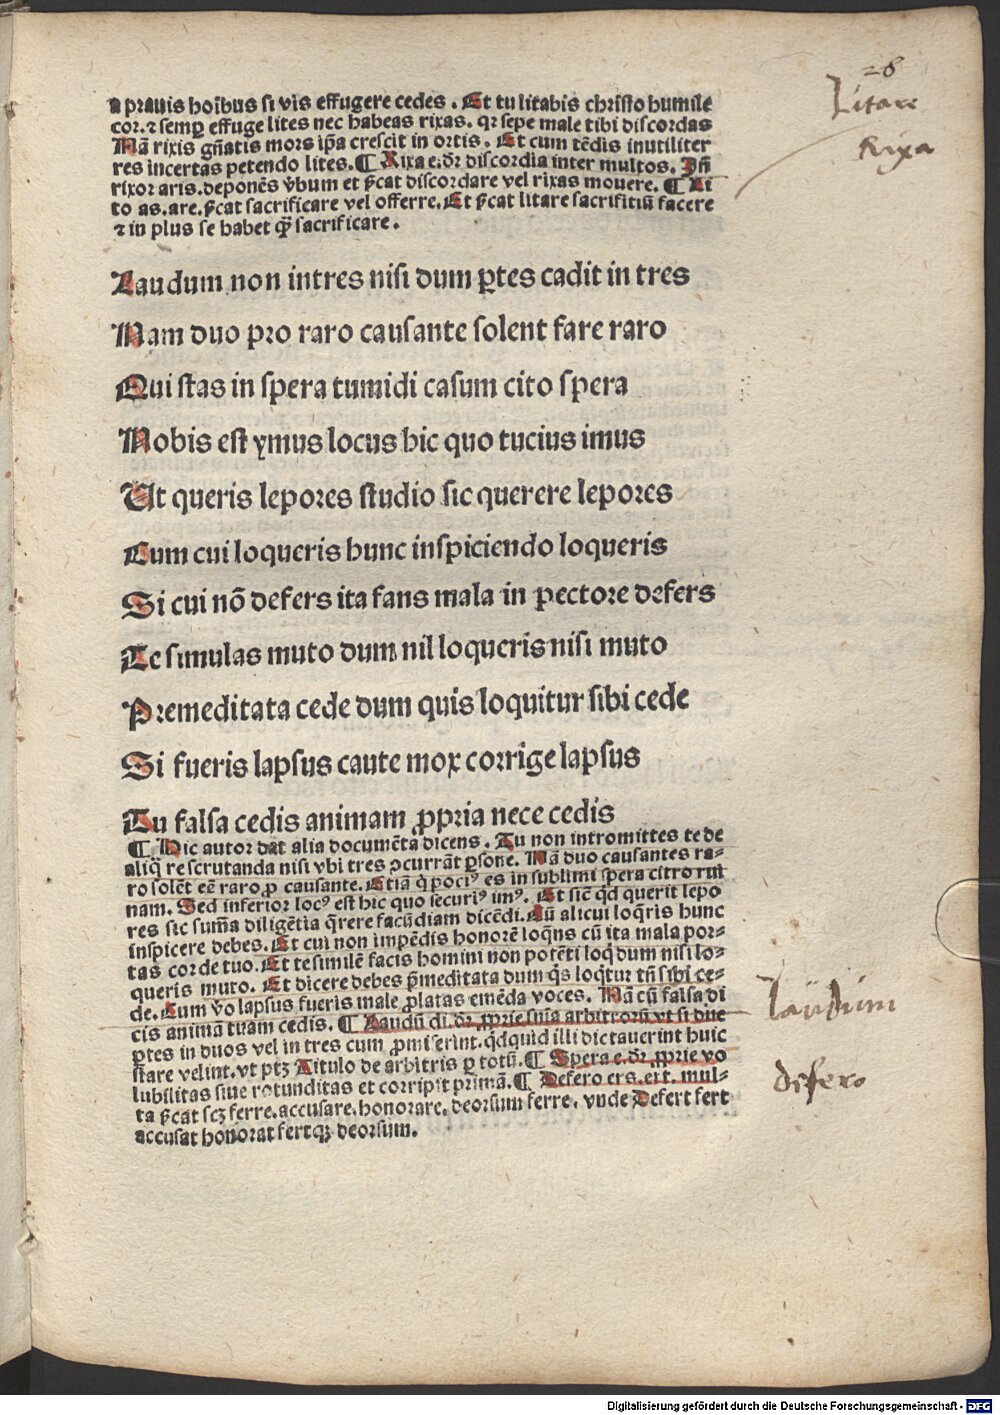 28
Litare
Rixa
a prauis hoībus si vis effugere cedes. Et tu litabis christo humile
cor. ⁊ semꝑ effuge lites nec habeas rixas. qꝛ sepe male tibi discordas
Nā rixis gn̄atis mors ip̄a crescit in ortis. Et cum tēdis inutiliter
res incertas petendo lites. ¶ Rixa e. dr̄ discordia inter multos. Jn̄
rixor aris. deponēs v̄bum et sc̄at discordare vel rixas mouere. ¶ Li
to as. are. sc̄at sacrificare vel offerre. Et sc̄at litare sacrifitiū facere
⁊ in plus se habet qᷓ sacrificare.
Laudum non intres nisi dum ꝑtes cadit in tres
Nam duo pro raro causante solent fare raro
Qui stas in spera tumidi casum cito spera
Nobis est ymus locus hic quo tucius imus
Ut queris lepores studio sic querere lepores
Cum cui loqueris hunc inspiciendo loqueris
Si cui nō defers ita fans mala in pectore defers
Te simulas muto dum nil loqueris nisi muto
Premeditata cede dum quis loquitur sibi cede
Si fueris lapsus caute mox corrige lapsus
Tu falsa cedis animam ꝓpria nece cedis
¶ Hic autor dat alia documēta dicens. Tu non intromittes te de
aliq̄ re scrutanda nisi vbi tres ɔcurrāt ꝑsone. Nā duo causantes ra-
ro solēt eē raro ꝓ causante. Etiā q̇ pociꝰ es in sublimi spera citro rui
nam. Sed inferior locꝰ est hic quo securiꝰ imꝰ. Et sic̄ qd̄ querit lepo
res sic sum̄a diligētia q̄rere facūdiam dicēdi. Cū alicui loq̄ris hunc
inspicere debes. Et cui non impēdis honorē loqn̄s cū ita mala por-
tas corde tuo. Et te similē facis homini non potēti loq̇ dum nisi lo-
queris muto. Et dicere debes p̄meditata dum q̇s loqt̄ur tn̄ sibi ce-
de. Cum v̄o lapsus fueris male ꝓlatas emēda voces. Nā cū falsa di
cis animā tuam cedis. ¶ Laudū di. dr̄ ꝓprie sn̄ia arbitrorū vt si due
ꝑtes in duos vel in tres cum ꝓmiserint. qd̄quid illi dictauerint huic
stare velint. vt ptꝫ Titulo de arbitris ꝑ totū. ¶ Spera e. dr̄ ꝓprie vo
lubilitas siue rotunditas et corripit primā. ¶ Defero ers. ert. mul-
ta sc̄at scꝫ ferre. accusare. honorare. deorsum ferre. vnde Defert fert
accusat honorat fertqꝫ deorsum.
laudum
defero
Digitalisierung gefördert durch die Deutsche Forschungsgemeinschaft - DFG